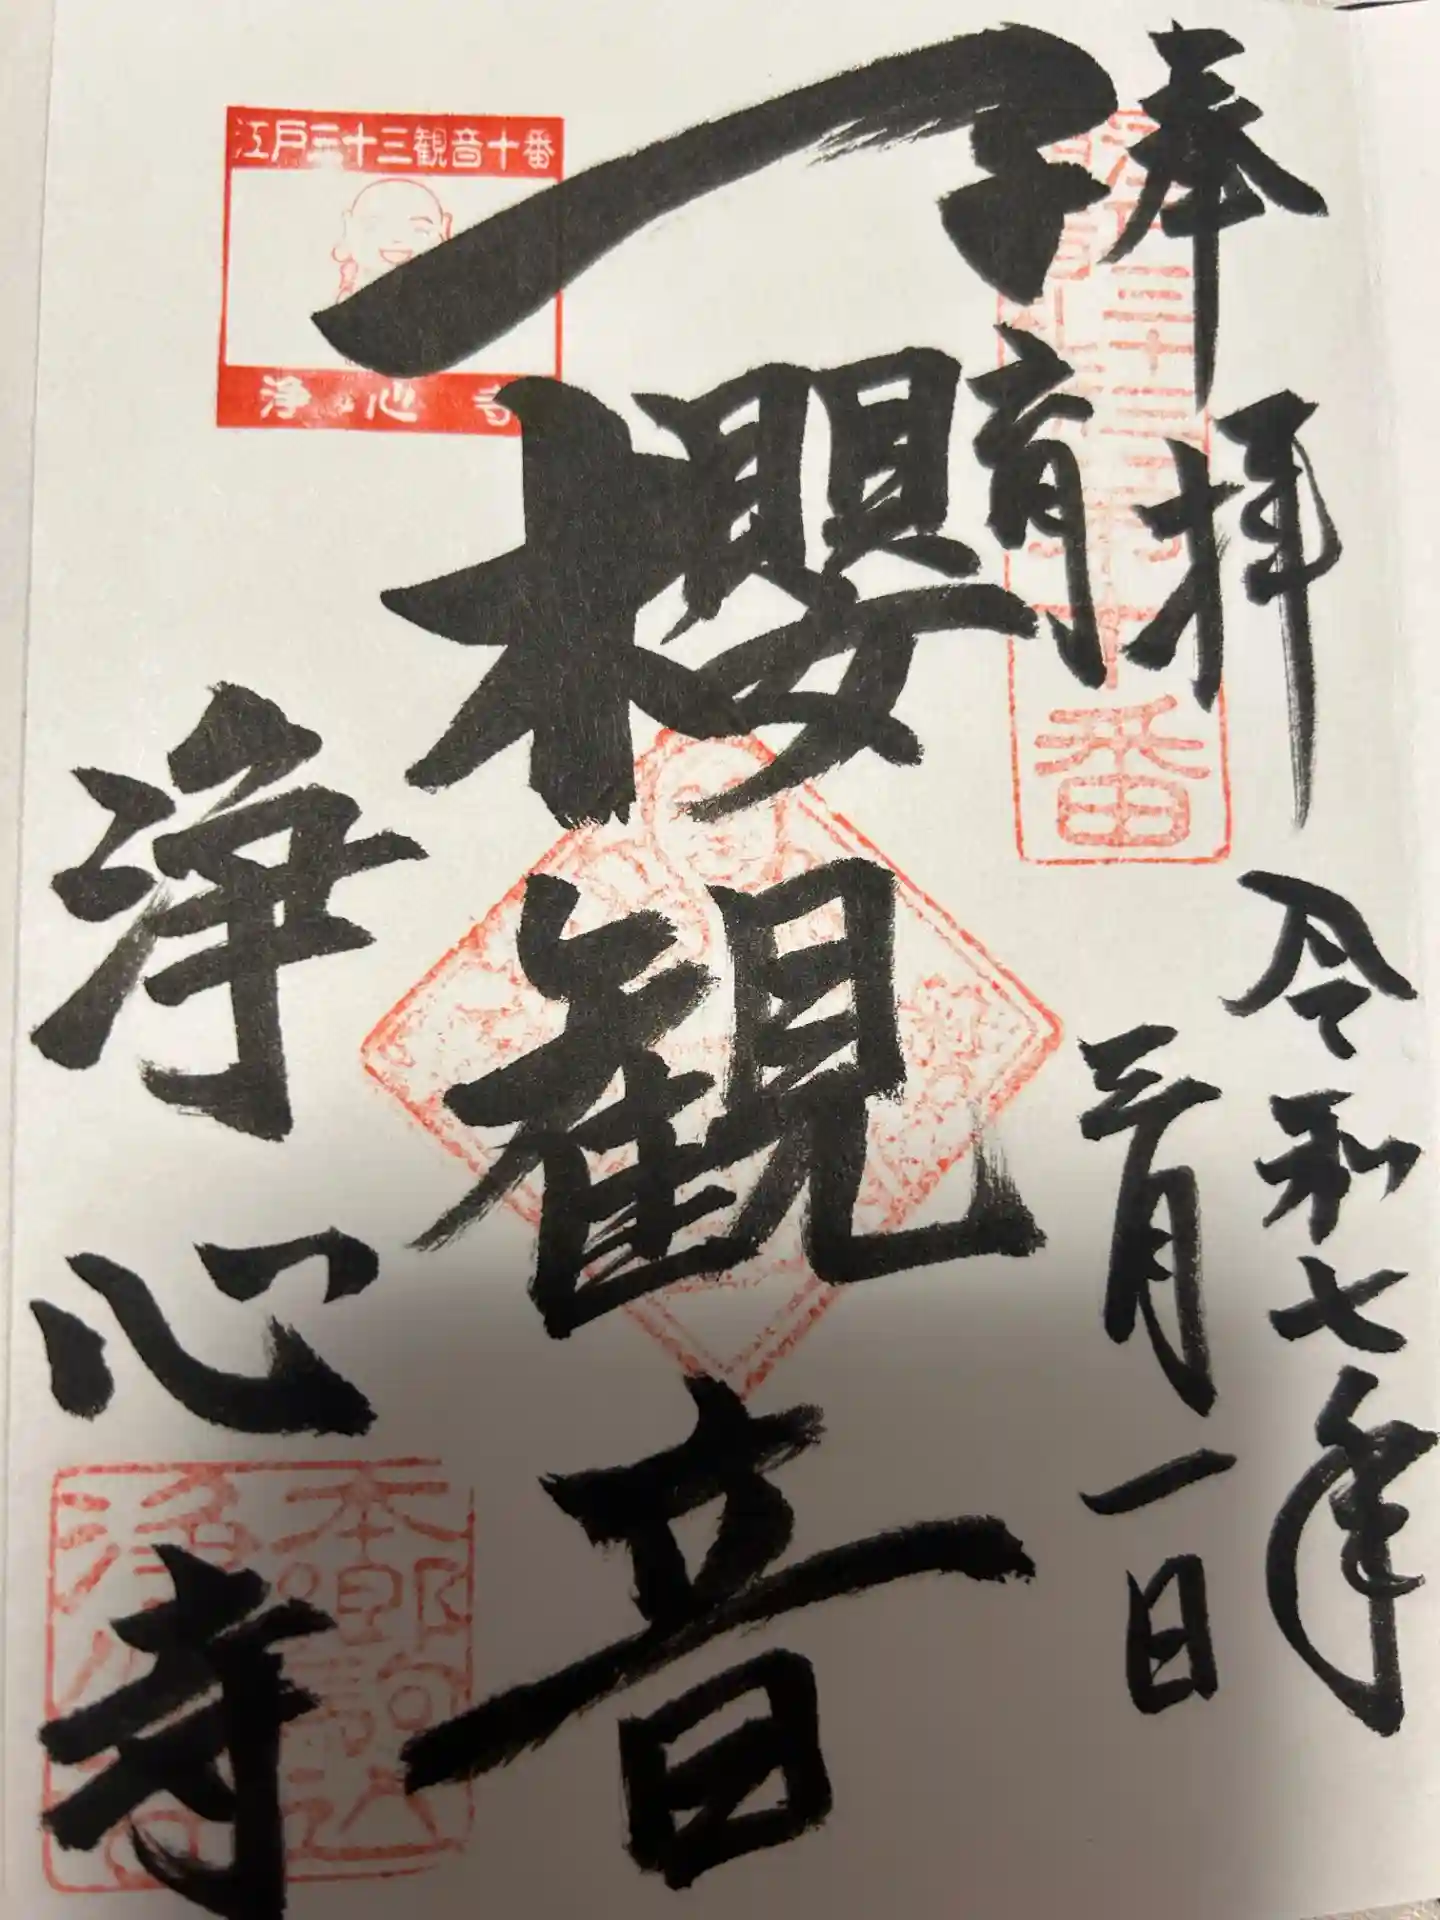 奉拝
令和七年
三月一日
江戸三十三観音十番
子育
櫻観音
江戸三十三観音十番
浄心寺
浄心寺
本郷駒込
浄心寺